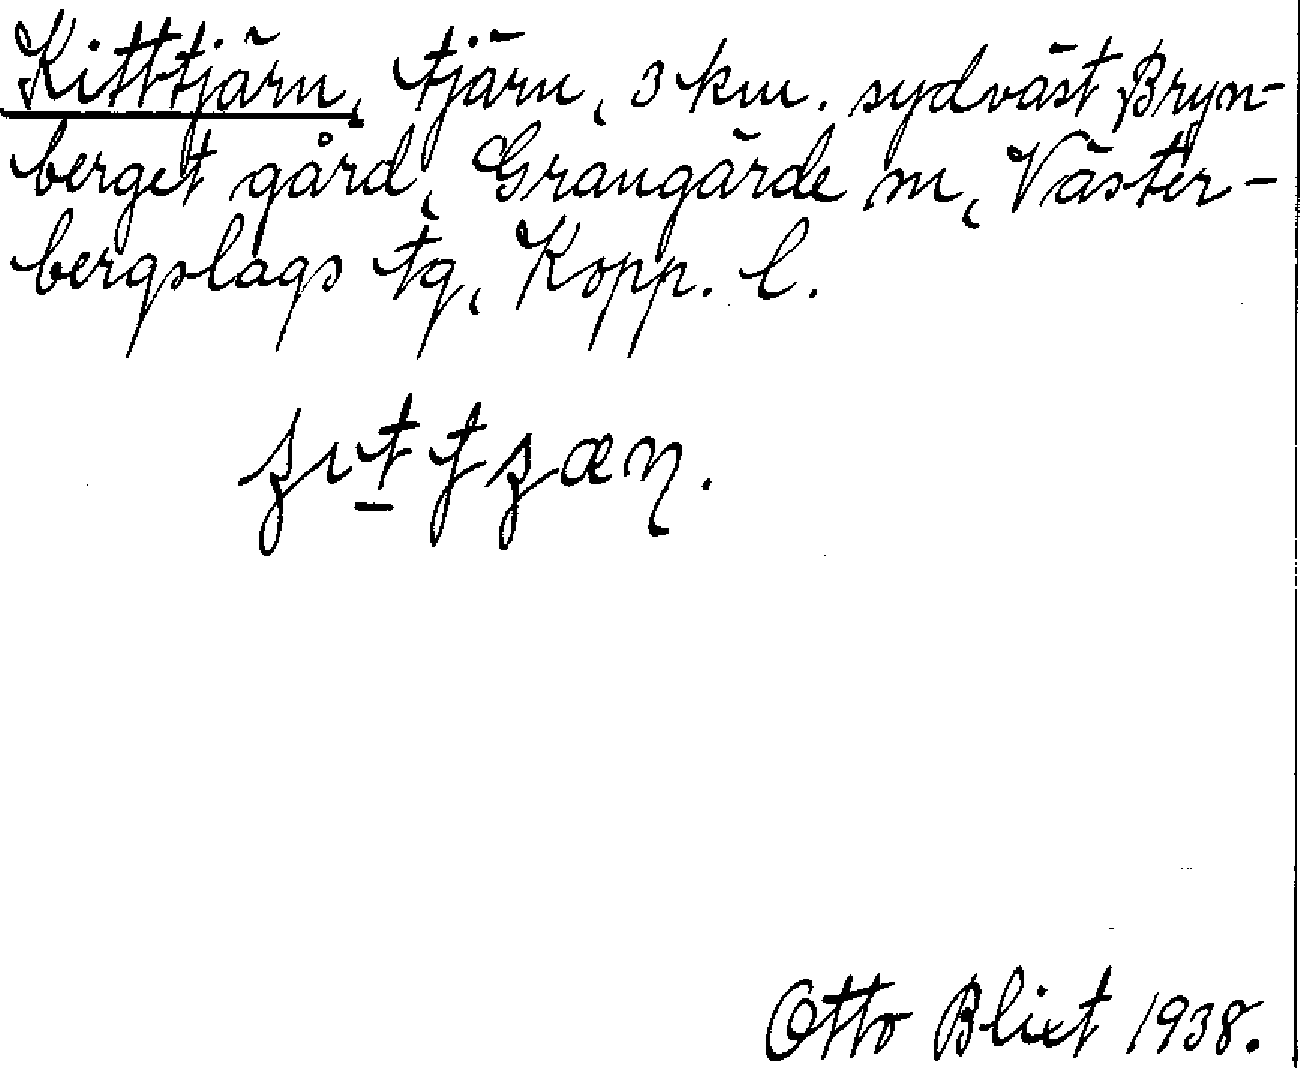 Kitttjärn, tjärn, 3 km. sydväst Bryn-
berget gård, Grangärde sn, Väster-
bergslags tg, Kopp. l.
Otto Blixt 1938.